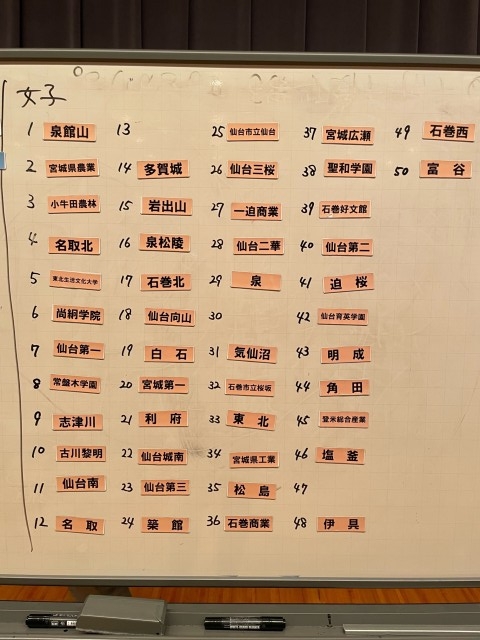 女子
1 泉館山
2 宮城県農業
3 小牛田農林
4 名取北
5 東北生活文化大学
6 尚絅学院
7 仙台第一
8 常盤木学園
9 志津川
10 古川黎明
11 仙台南
12 名取
13
14 多賀城
15 岩出山
16 泉松陵
17 石巻北
18 仙台向山
19 白石
20 宮城第一
21 利府
22 仙台城南
23 仙台第三
24 築館
25 仙台市立仙台
26 仙台三桜
27 一迫商業
28 仙台二華
29 泉
30
31 気仙沼
32 石巻市立桜坂
33 東北
34 宮城県工業
35 松島
36 石巻商業
37 宮城広瀬
38 聖和学園
39 石巻好文館
40 仙台第二
41 迫桜
42 仙台育英学園
43 明成
44 角田
45 登米総合産業
46 塩釜
47
48 伊具
49 石巻西
50 富谷